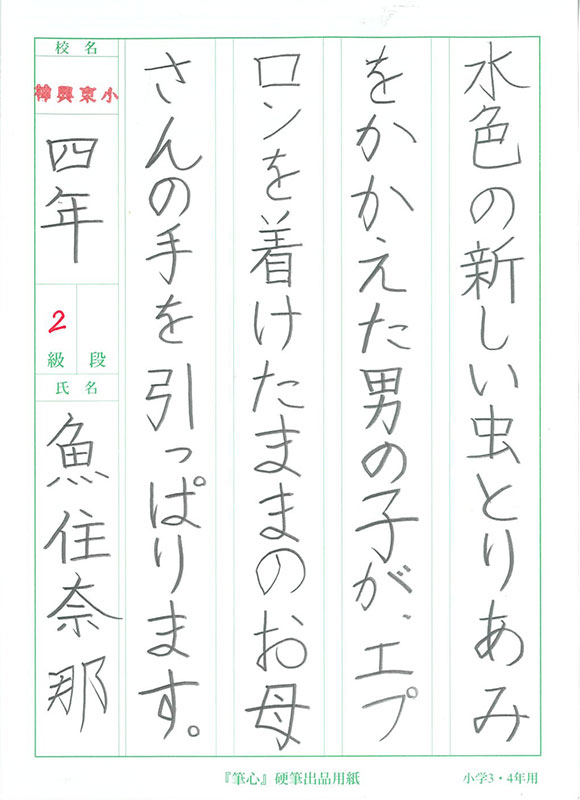 水色の新しい虫とりあみ
をかかえた男の子が、エプ
ロンを着けたままのお母
さんの手を引っぱります。
校名
神興東小
四年
2
級段
氏名
魚住奈那
『筆心』硬筆出品用紙
小学3・4年用